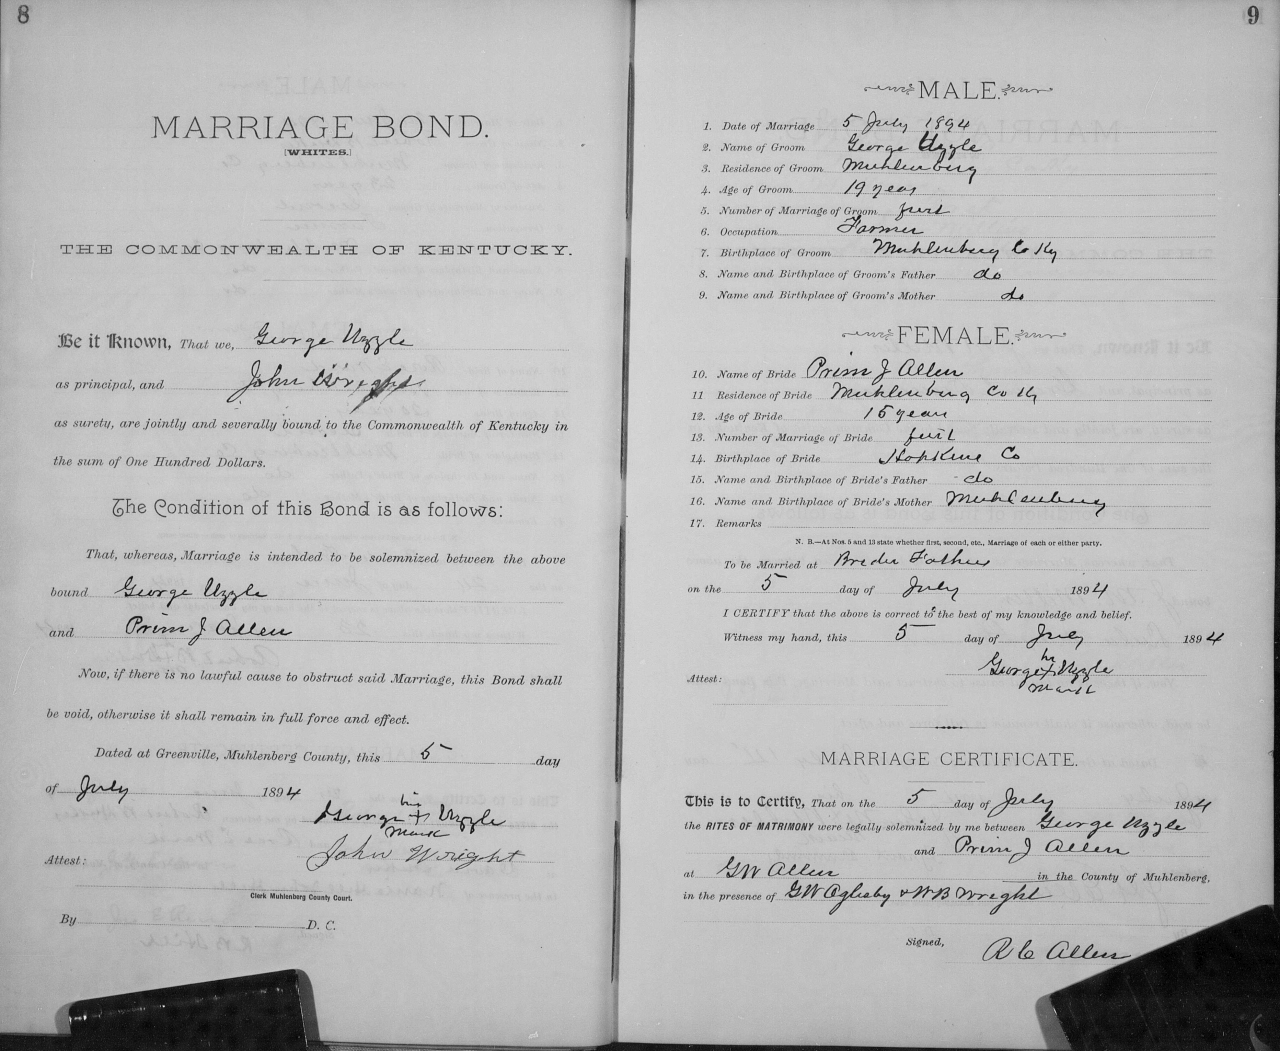 8
MARRIAGE BOND.
[WHITES.]
THE COMMONWEALTH OF KENTUCKY.
Be it Known, That we, George Uzzle
as principal, and John Wright
as surety, are jointly and severally bound to the Commonwealth of Kentucky in
the sum of One Hundred Dollars.
The Condition of this Bond is as follows:
That, whereas, Marriage is intended to be solemnized between the above
bound George Uzzle
and Prim J Allen
Now, if there is no lawful cause to obstruct said Marriage, this Bond shall
be void, otherwise it shall remain in full force and effect.
Dated at Greenville, Muhlenberg County, this 5 day
of July 1894
his
George + Uzzle
mark
Attest: John Wright
Clerk Muhlenberg County Court.
By D. C.
9
MALE.
1. Date of Marriage 5 July 1894
2. Name of Groom George Uzzle
3. Residence of Groom Muhlenberg
4. Age of Groom 19 years
5. Number of Marriage of Groom first
6. Occupation Farmer
7. Birthplace of Groom Muhlenberg Co Ky
8. Name and Birthplace of Groom's Father do
9. Name and Birthplace of Groom's Mother do
FEMALE.
10. Name of Bride Prim J Allen
11 Residence of Bride Muhlenberg Co Ky
12. Age of Bride 15 years
13. Number of Marriage of Bride first
14. Birthplace of Bride Hopkins Co
15. Name and Birthplace of Bride's Father do
16. Name and Birthplace of Bride's Mother Muhlenberg
17. Remarks
N. B.—At Nos. 5 and 13 state whether first, second, etc., Marriage of each or either party.
To be Married at Brides Fathers
on the 5 day of July 1894
I CERTIFY that the above is correct to the best of my knowledge and belief.
Witness my hand, this 5 day of July 1894
his
George + Uzzle
mark
Attest:
MARRIAGE CERTIFICATE.
This is to Certify, That on the 5 day of July 1894
the RITES OF MATRIMONY were legally solemnized by me between George Uzzle
and Prim J Allen
at GW Allen in the County of Muhlenberg,
in the presence of GW Oglesby & WB Wright
Signed, R C Allen